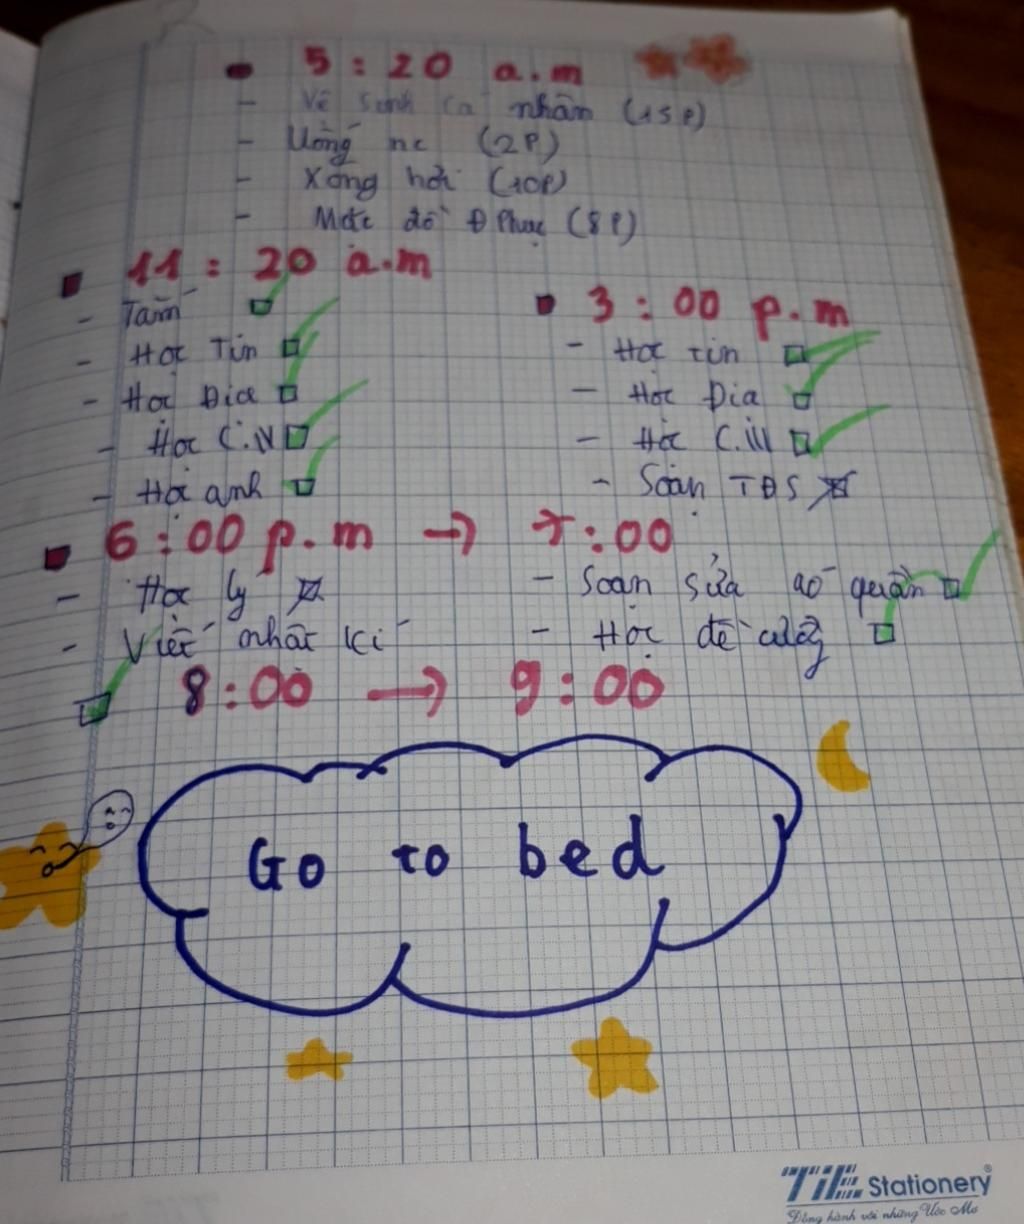 5 : 20 a.m
- Vệ sinh cá nhân (15P)
- Uống nc (2P)
- Xông hơi (10P)
- Mặc đồ Đ Phục (8P)
11 : 20 a.m
- Tắm
- Học Tin
- Học Địa
- Học C.N
- Học anh
3 : 00 p.m
- Học tin
- Học Địa
- Học C.N
- Soạn TĐS
6 : 00 p.m → 7 : 00
- Học lý
- Viết nhật kí
- Soạn sửa áo quần
- Học đề cương
8 : 00 → 9 : 00
Go to bed
TiE Stationery®
Đồng hành với những Ước Mơ